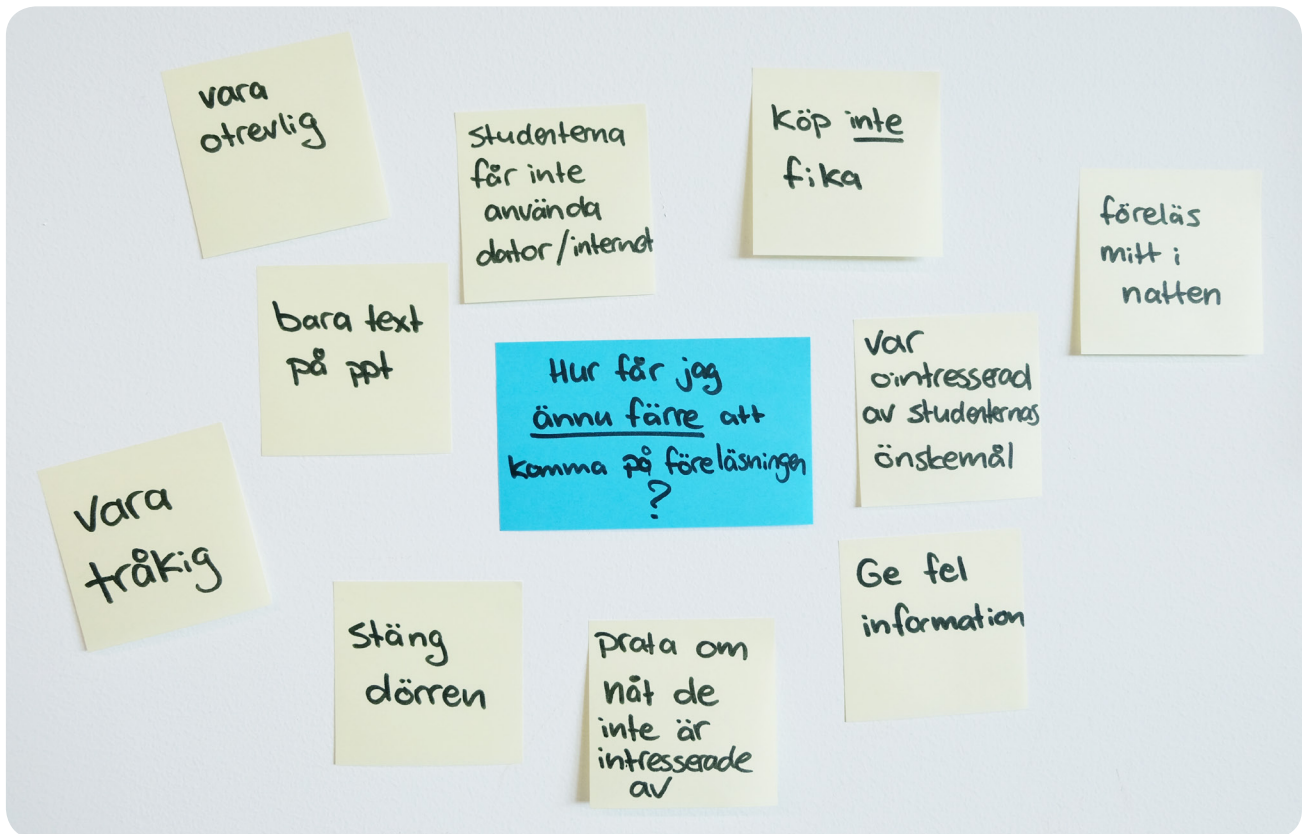 vara
otrevlig
studenterna
får inte
använda
dator/internet
köp inte
fika
föreläs
mitt i
natten
bara text
på ppt
Hur får jag
ännu färre att
komma på föreläsningen
?
var
ointresserad
av studenternas
önskemål
vara
tråkig
Stäng
dörren
prata om
nåt de
inte är
intresserade
av
Ge fel
information